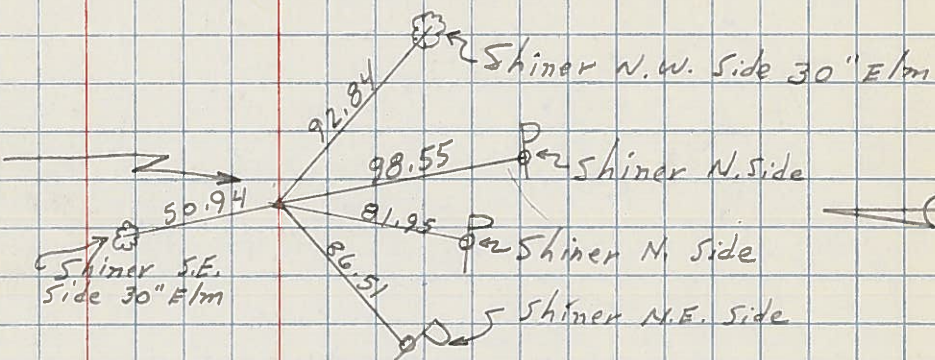 Shiner N.W. Side 30" Elm
92.84
98.55
Shiner N. Side
50.94
81.95
Shiner N. Side
Shiner S.E.
Side 30" Elm
86.51
Shiner N.E. Side